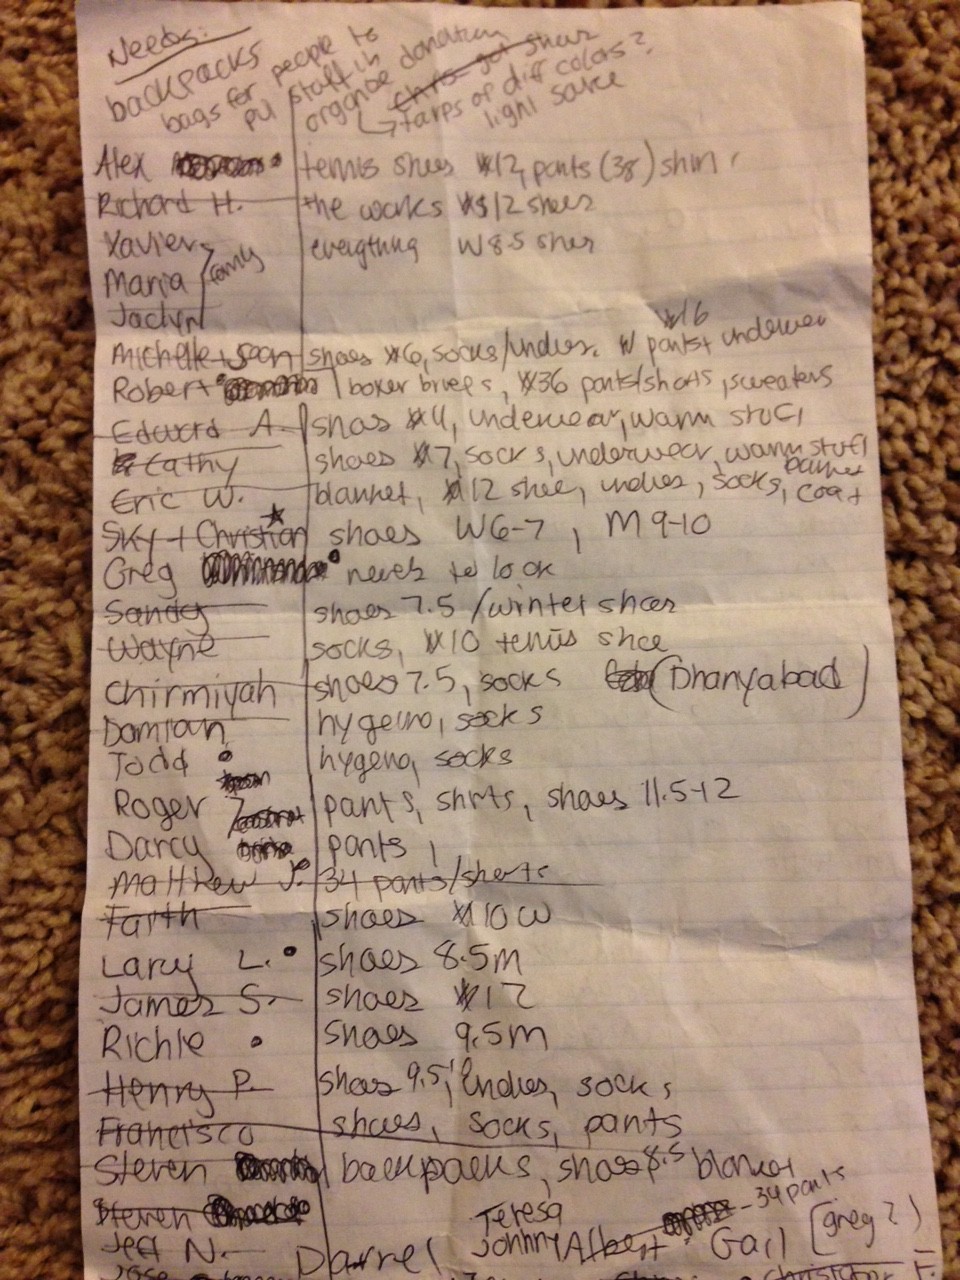 Needs:
backpacks
bags for people to
put stuff in
organize donation
Chris got shoes
tarps of diff colors?
light source
Alex tennis shoes #12, pants (38) shirt
Richard H. the works #12 shoes
Xavier everything W 8.5 shoes
Maria family
Jaclyn
#16
Michelle + Sean shoes #6, socks/undies, W pants + underwear
Robert boxer briefs, #36 pants/shorts, sweaters
Edward A. shoes #4, underwear, warm stuff
Cathy shoes #7, socks, underwear, warm stuff
Eric W. blanket, #12 shoe, undies, socks, coat
Sky + Christian shoes W6-7, M 9-10
Greg needs to look
Sandy shoes 7.5 / winter shoes
Wayne socks, #10 tennis shoe
Chirmiyah shoes 7.5, socks (Dhanyabad)
Damian hygeine, socks
Todd hygene, socks
Roger pants, shirts, shoes 11.5-12
Darcy pants,
Matthew J. 34 pants/shorts
Faith shoes #10W
Lary L. shoes 8.5m
James S. shoes #12
Richie shoes 9.5m
Henry P. shoes 9.5, undies, socks
Francisco shoes, socks, pants
Steven backpacks, shoes 8.5 blanket
Steven Teresa - 34 pants
Jeff N. Darrel Johnny Albert Gail [Greg?]
Jose